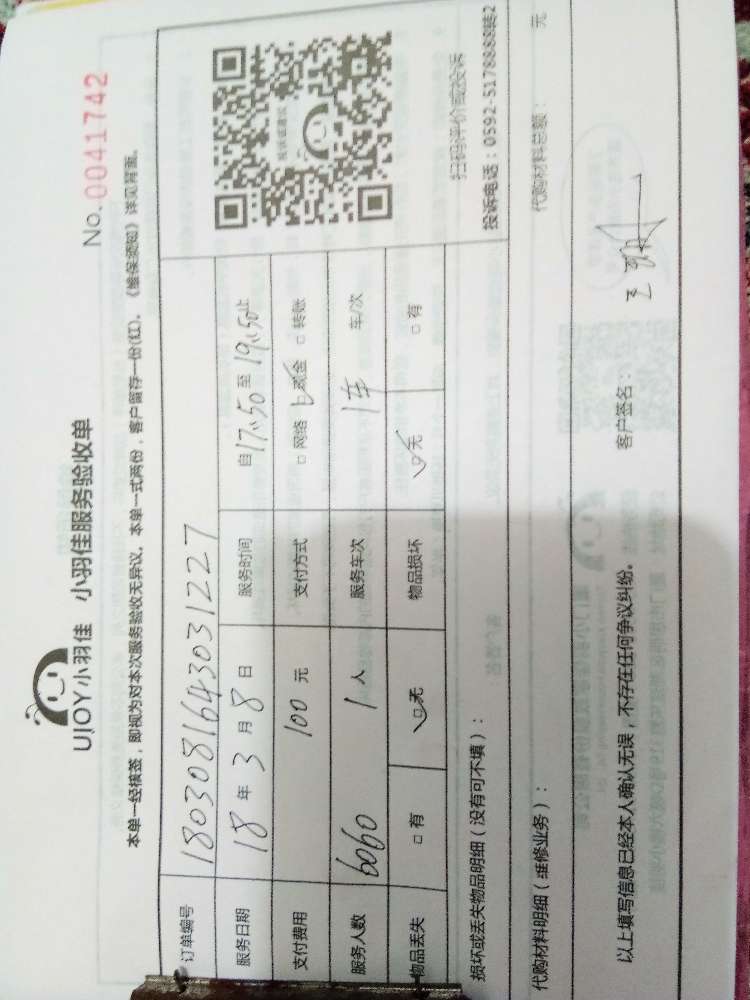 UJOY小羽佳 小羽佳服务验收单
No.0041742
本单一经核签，即视为对本次服务验收无异议。本单一式两份，客户留存一份(红)。《维保须知》详见背面。
订单编号 180308164303 1227
服务日期 18 年 3 月 8 日 服务时间 自 17:50 至 19:50 止
支付费用 100 元 支付方式 □ 网络 现金 □ 转账
服务人数 6060 1 人 服务车次 1车 车/次
物品丢失 □ 有 ☑ 无 物品损坏 ☑ 无 □ 有
扫码评价或投诉
投诉电话：0592-5178888转2
损坏或丢失物品明细（没有可不填）：
代购材料明细（维修业务）： 代购材料总额： 元
以上填写信息已经本人确认无误，不存在任何争议纠纷。 客户签名：